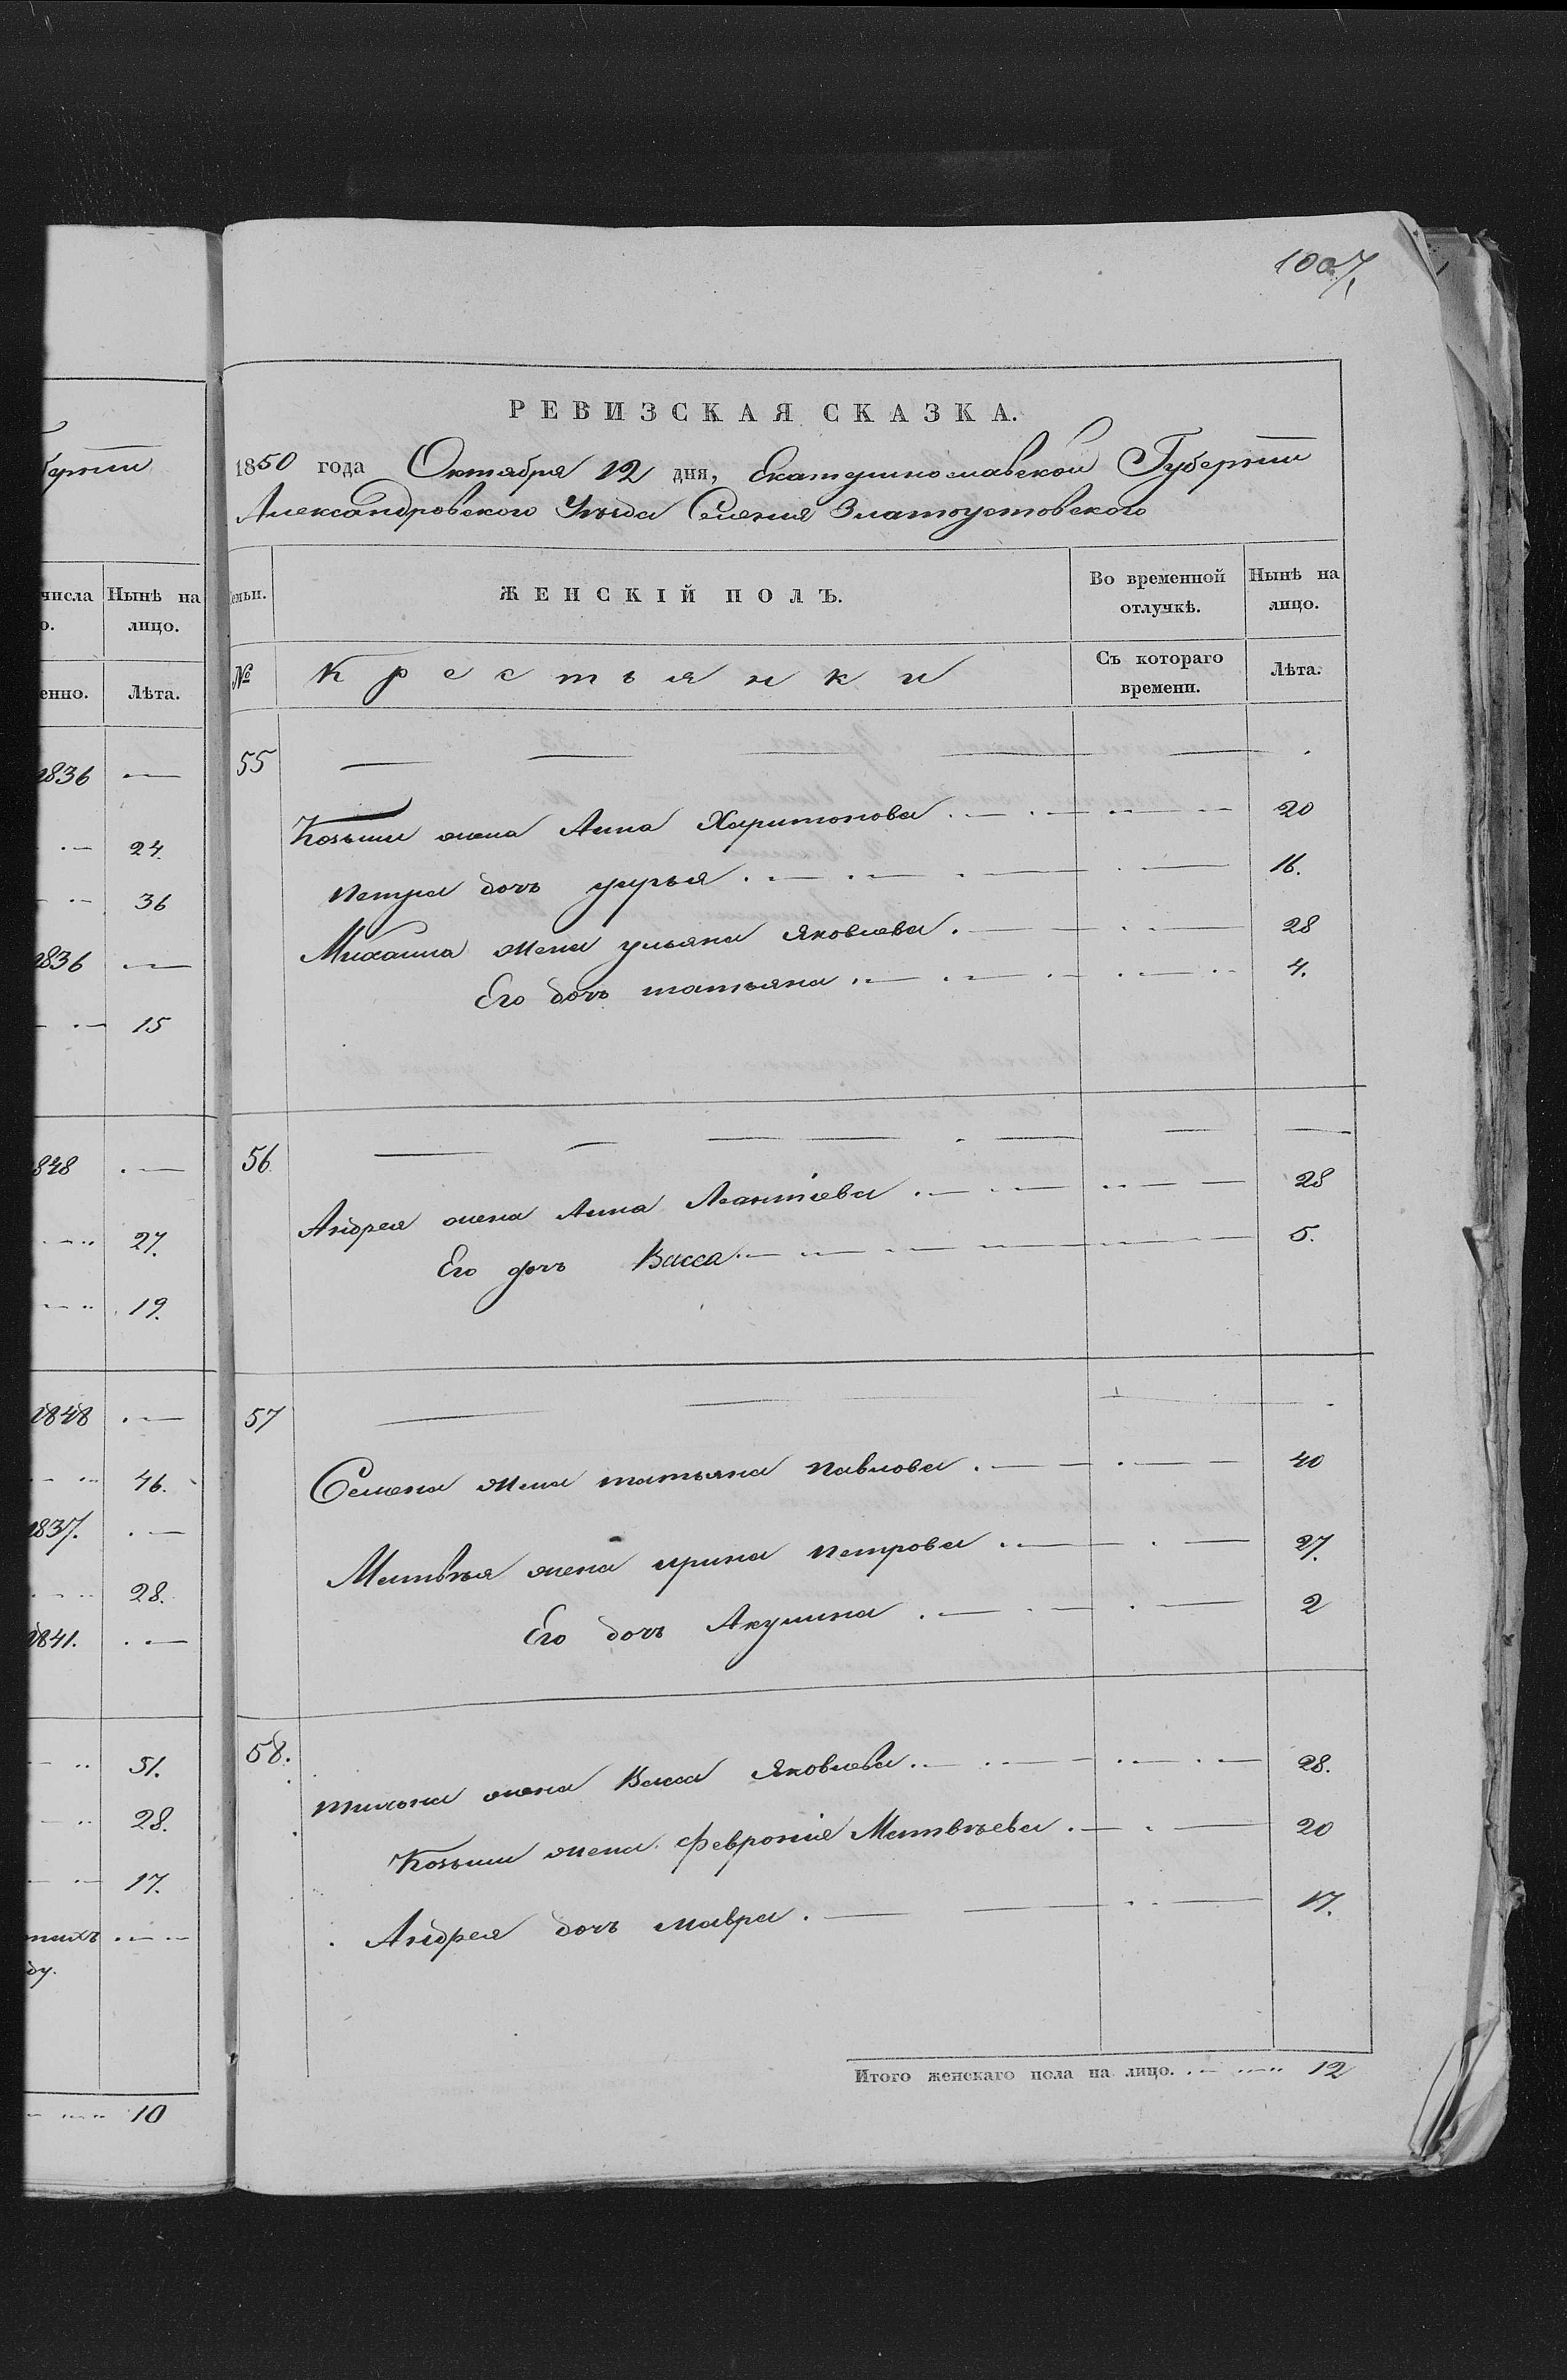 бернiи
числа Нынѣ на
о. лицо.
енно. Лѣта.
1836 —
24.
36
1836 —
15
1848 —
27.
19.
1848 —
46.
1837. —
28.
1841. —
51.
28.
17.
ду.
10
1007
РЕВИЗСКАЯ СКАЗКА.
1850 года Октября 12 дня, Екатеринославской Губернiи
Александровского Уѣзда Селения Златоустовского
емьи. ЖЕНСКІЙ ПОЛЪ. Во временной отлучкѣ. Нынѣ на лицо.
№ Крестьянки Съ котораго времени. Лѣта.
55 —
Козьмы жена Анна Харитонова 20
Петра дочь 16.
Михаила жена ульяна Яковлева 28
Его дочь татьяна 4.
56 —
Андрея жена Анна Леантiева 28
Его дочь Васса 5.
57 —
Семена жена татьяна павлова 40
Матвѣя жена ирина петрова 27.
Его дочь Акулина 2
58.
жена Васса Яковлева 28.
Козьмы жена Февронiя Матвѣева 20
Андрея дочь мавра 17.
Итого женскаго пола на лицо. 12